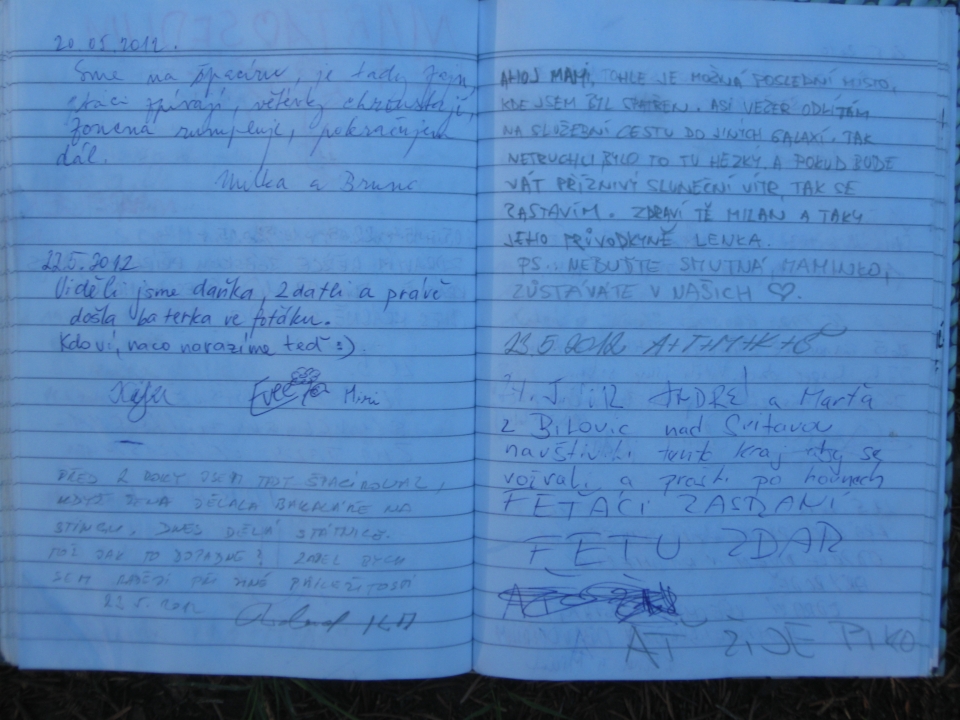 20.05.2012.
Sme na špacíru, je tady fajn,
ptáci zpívají, větévky chroustají,
pokračujem
dál.
Milka a Bruno
22.5.2012
Viděli jsme daňka, 2 datli a právě
došla baterka ve foťáku.
Kdoví, naco narazíme teď :).
Mini
PŘED 2 ROKY JSEM TUT ŠPACÍROVAL,
KDYŽ ŽENA DĚLALA BAKALÁŘE NA
DNES DĚLÁ STÁTNICE.
TOŽ JAK TO DOPADNE?
SEM PŘI JINÉ PŘÍLEŽITOSTI
23.5.2012
AHOJ MAMI, TOHLE JE MOŽNÁ POSLEDNÍ MÍSTO,
KDE JSEM BYL SPATŘEN. ASI VEČER ODLÍTÁM
NA SLUŽEBNÍ CESTU DO JINÝCH GALAXÍ. TAK
NETRUCHLI BYLO TO TU HEZKÝ A POKUD BUDE
VÁT PŘÍZNIVÝ SLUNEČNÍ VÍTR TAK SE
ZASTAVÍM. ZDRAVÍ TĚ MILAN A TAKY
JEHO PRŮVODKYNĚ LENKA.
PS. NEBUĎTE SMUTNÁ, MAMINKO,
ZŮSTÁVÁTE V NAŠICH ♡.
23.5.2012 A+T+M+K+
ANDRE a Marťa
z Bílovic nad Svitavou
navštívili tento kraj
a prošli po horách
FEŤÁCI ZASRANÍ
FETU ZDAR
AŤ ŽIJE PIKO